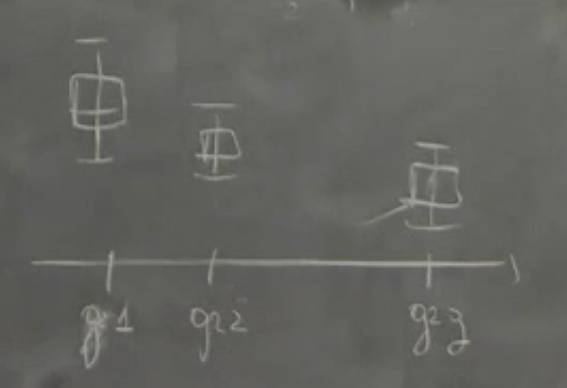 gr1 gr2 gr3